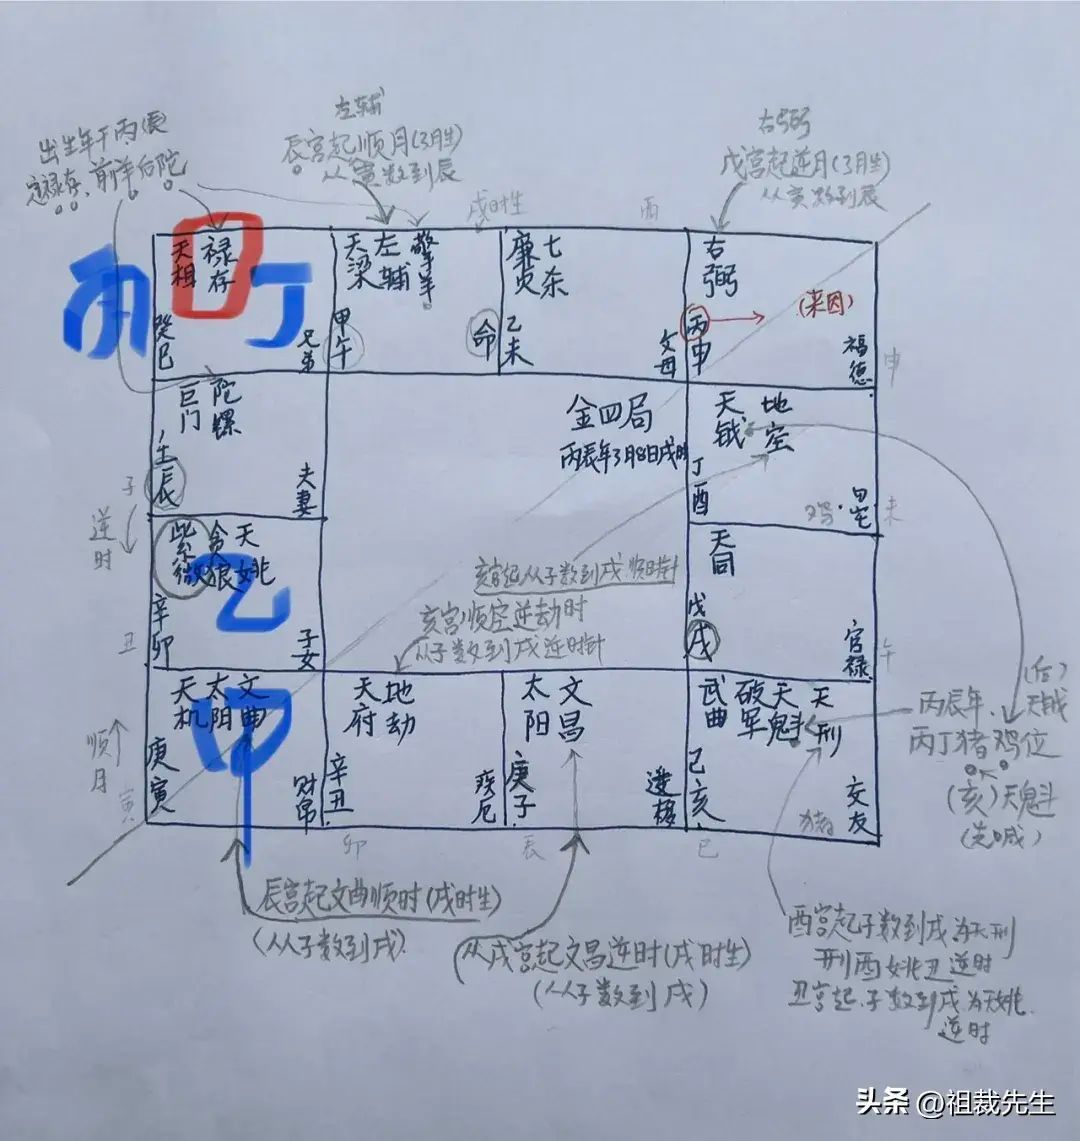 左辅
辰宫起顺月(3月生)
从寅数到辰
右弼
戌宫起逆月(3月生)
从寅数到辰
出生年干丙辰
定禄存、前羊后陀
戌时生
酉
天相
禄存
丙
丁
癸巳
兄弟
天梁
左辅
擎羊
甲午
命
廉贞
七杀
乙未
父母
右弼
丙申
(来因)
福德
申
巨门
陀螺
壬辰
夫妻
子
逆时
金四局
丙辰年3月8日戌时
天钺
地空
丁酉
鸡·
田宅
未
紫微
贪狼
天姚
乙
辛卯
子女
丑
亥宫起从子数到戌顺时针
亥宫顺空逆劫时
从子数到戌逆时针
天同
戊戌
官禄
午
天机
太阳
文曲
甲
庚寅
财帛
顺月
寅
天府
地劫
辛丑
疾厄
太阳
文昌
庚子
迁移
武曲
破军
天魁
天刑
己亥
交友
猪
卯
辰
巳
(后)
天钺
丙辰年、
丙丁猪鸡位
(亥)天魁
(先喊)
辰宫起文曲顺时(戌时生)
(从子数到戌)
从戌宫起文昌逆时(戌时生)
(从子数到戌)
酉宫起子数到戌为天刑
刑酉姚丑逆时
丑宫起.子数到戌为天姚.
逆时
头条 @祖裁先生